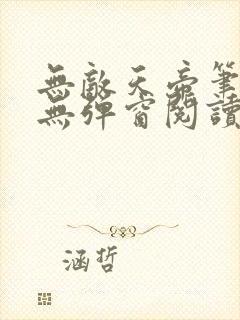 無敵天帝筆
無彈窗閱讀
涵哲